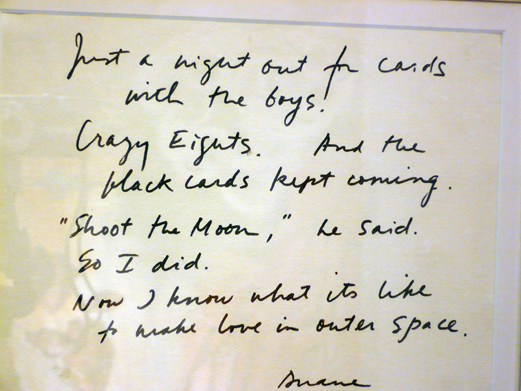 Just a night out for cards
with the boys.
Crazy Eights. And the
black cards kept coming.
"Shoot the Moon," he said.
So I did.
Now I know what its like
to make love in outer space.
Duane